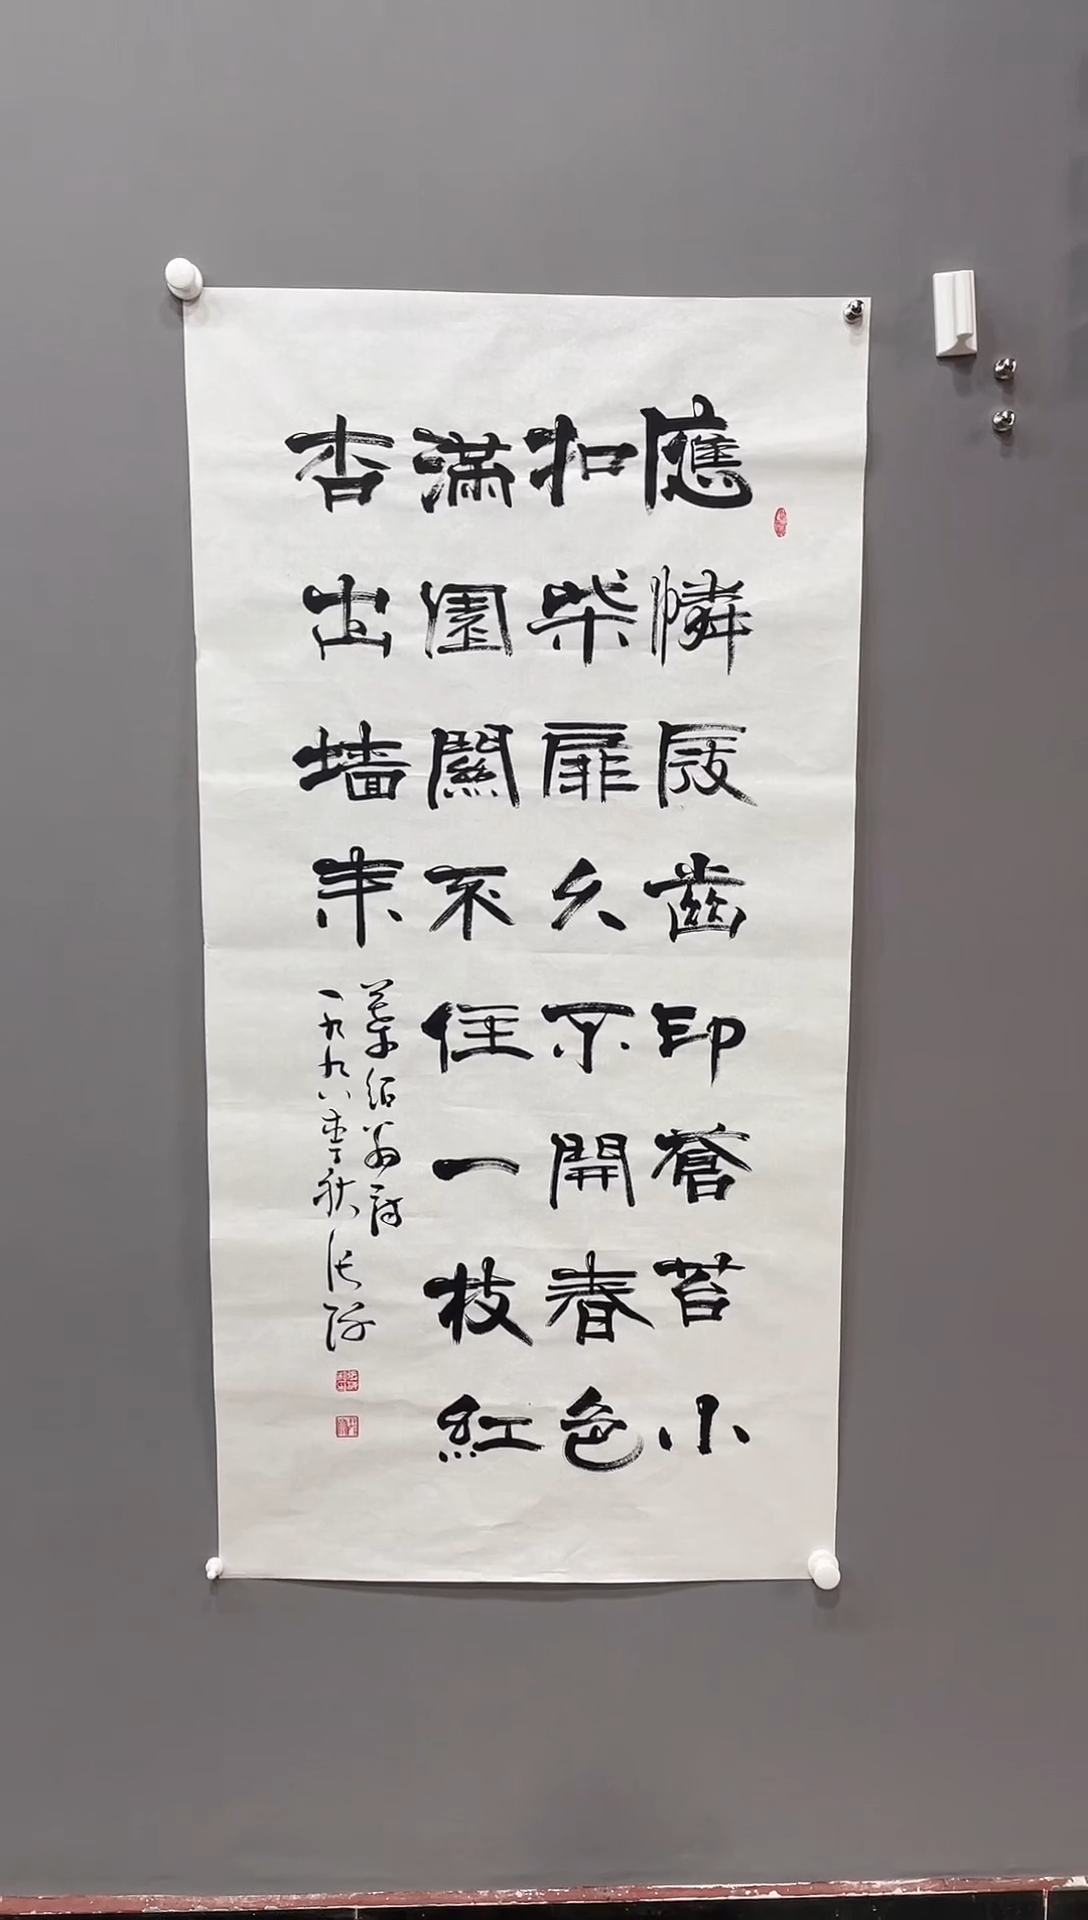 應憐屐齒印蒼苔小
扣柴扉久不開春色
滿園關不住一枝紅
杏出墙来
葉紹翁詩
一九九八年秋張